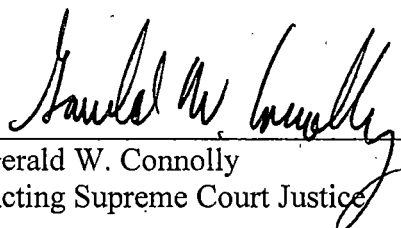 Gerald W. Connolly
erald W. Connolly
cting Supreme Court Justice